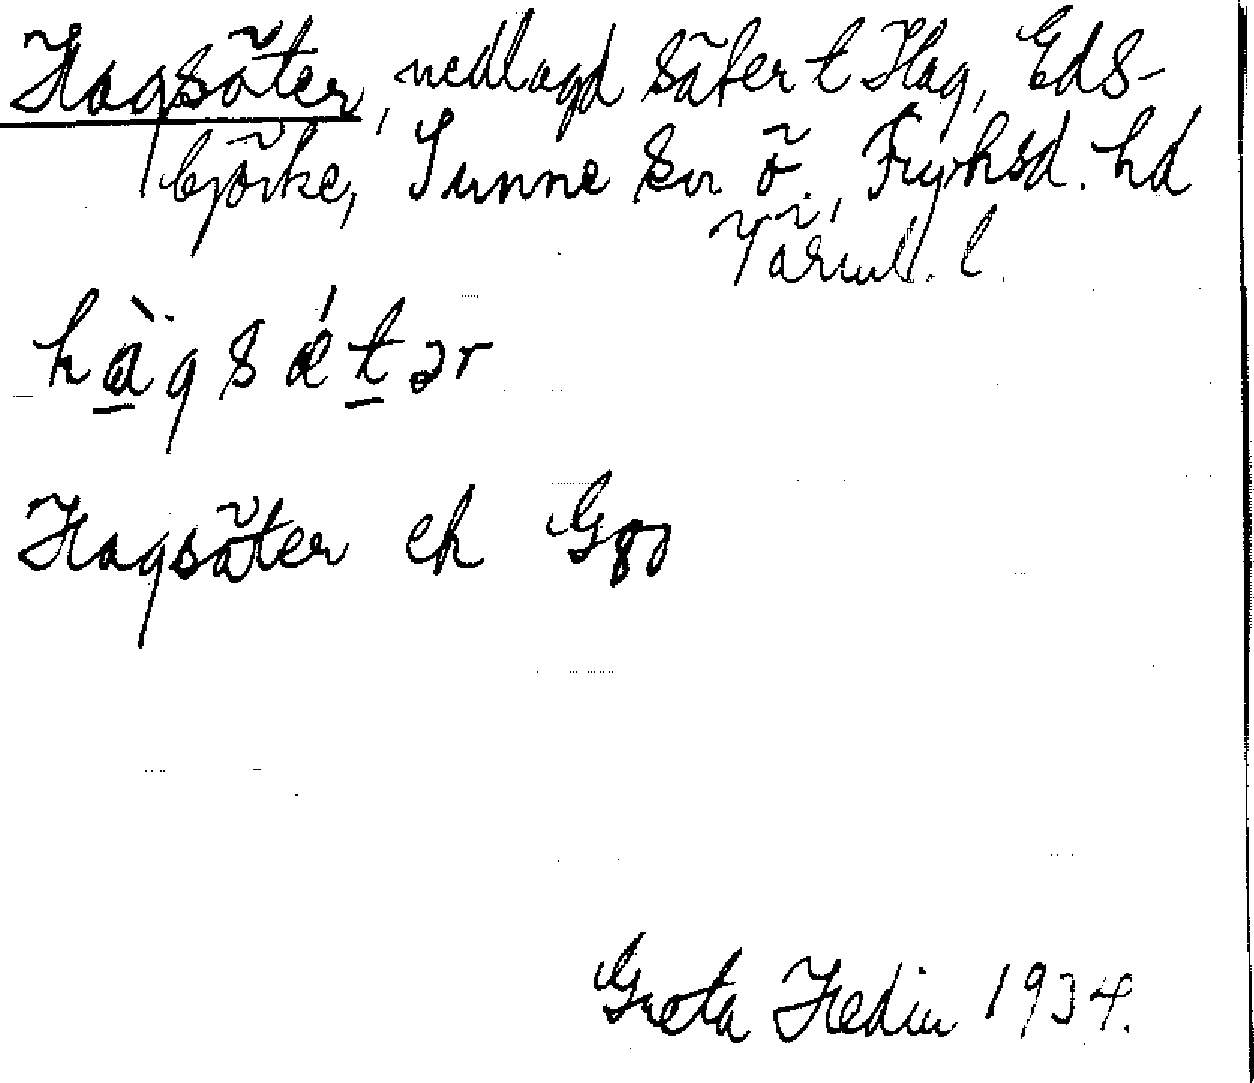 Hagsäter, nedlagd säter t Hag, Eds-
björke, Sunne sn ö., Fryksd. hd
Värml. l.
hàgsǽtər
Hagsäter ek
Greta Hedin 1934.